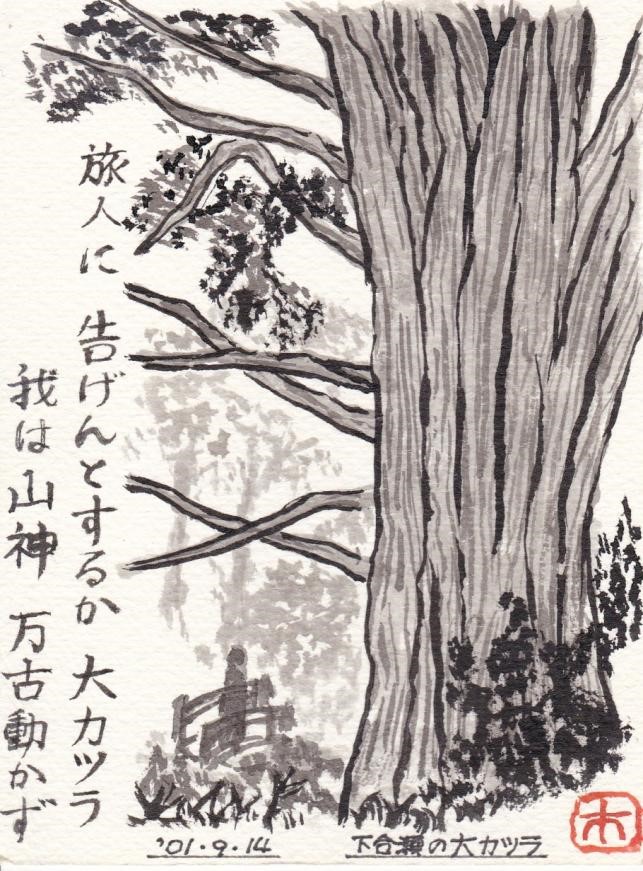 旅人に 告げんとするか 大カツラ
我は山神 万古動かず
'01.9.14
下合瀬の大カツラ
木